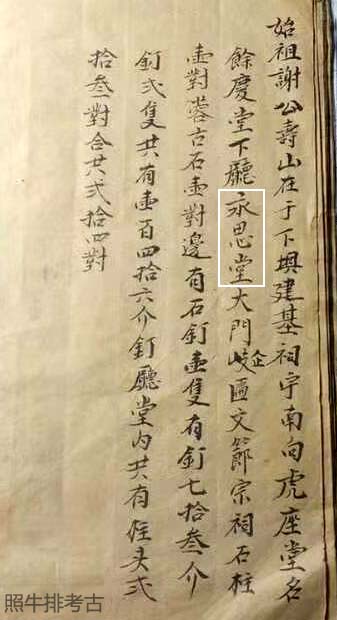 始祖謝公壽山在于下㘵建基祠宇南向虎座堂名
餘慶堂下廳永思堂大門企匾文節宗祠石柱
壹對蓉古石壹對邊有石釘壹隻有釘七拾叁介
釘弍隻共有壹百四拾六介釘廳堂內共有柱夫弍
拾叁對合共弍拾四對
照牛排考古